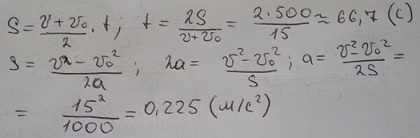 S = (v + v₀)/2 · t ; t = 2S/(v + v₀) = 2 · 500/15 ≈ 66,7 (с)
s = (v² − v₀²)/2a ; 2a = (v² − v₀²)/s ; a = (v² − v₀²)/2S =
= 15²/1000 = 0,225 (м/с²)